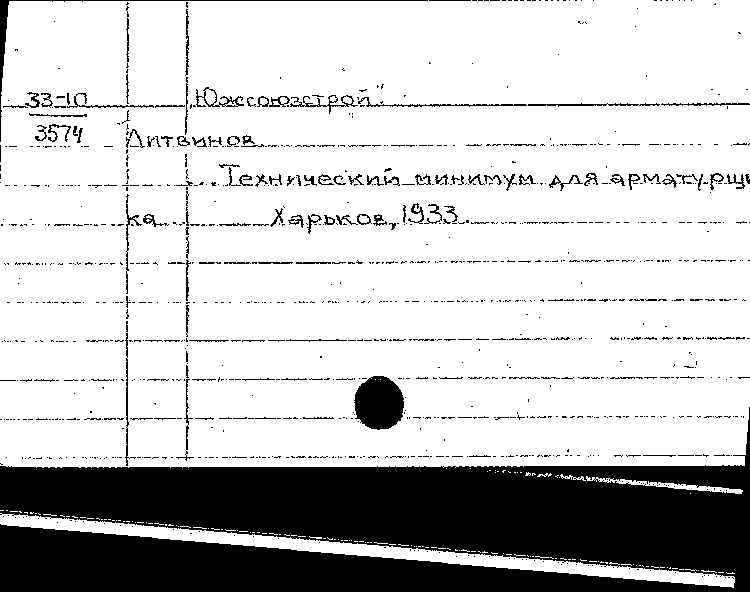 33-10 „Южсоюзстрой".
3574 Литвинов
...Технический минимум для арматурщи
ка... Харьков, 1933.